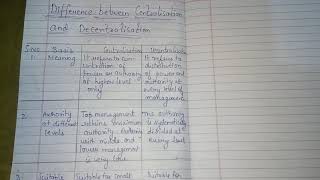 Difference between Centralisation
and Decentralisation
S.no Basis Centralisation Decentralisation
1. Meaning It refers to con- It refers to
distribution
power an authority of power and
at higher level authority at
only every level of
management.
2. Authority Top management The authority
at different retains maximum is systematically
levels authority divided at
with middle and every level
lower management
is very low
3. Suitable Suitable for small Suitable for